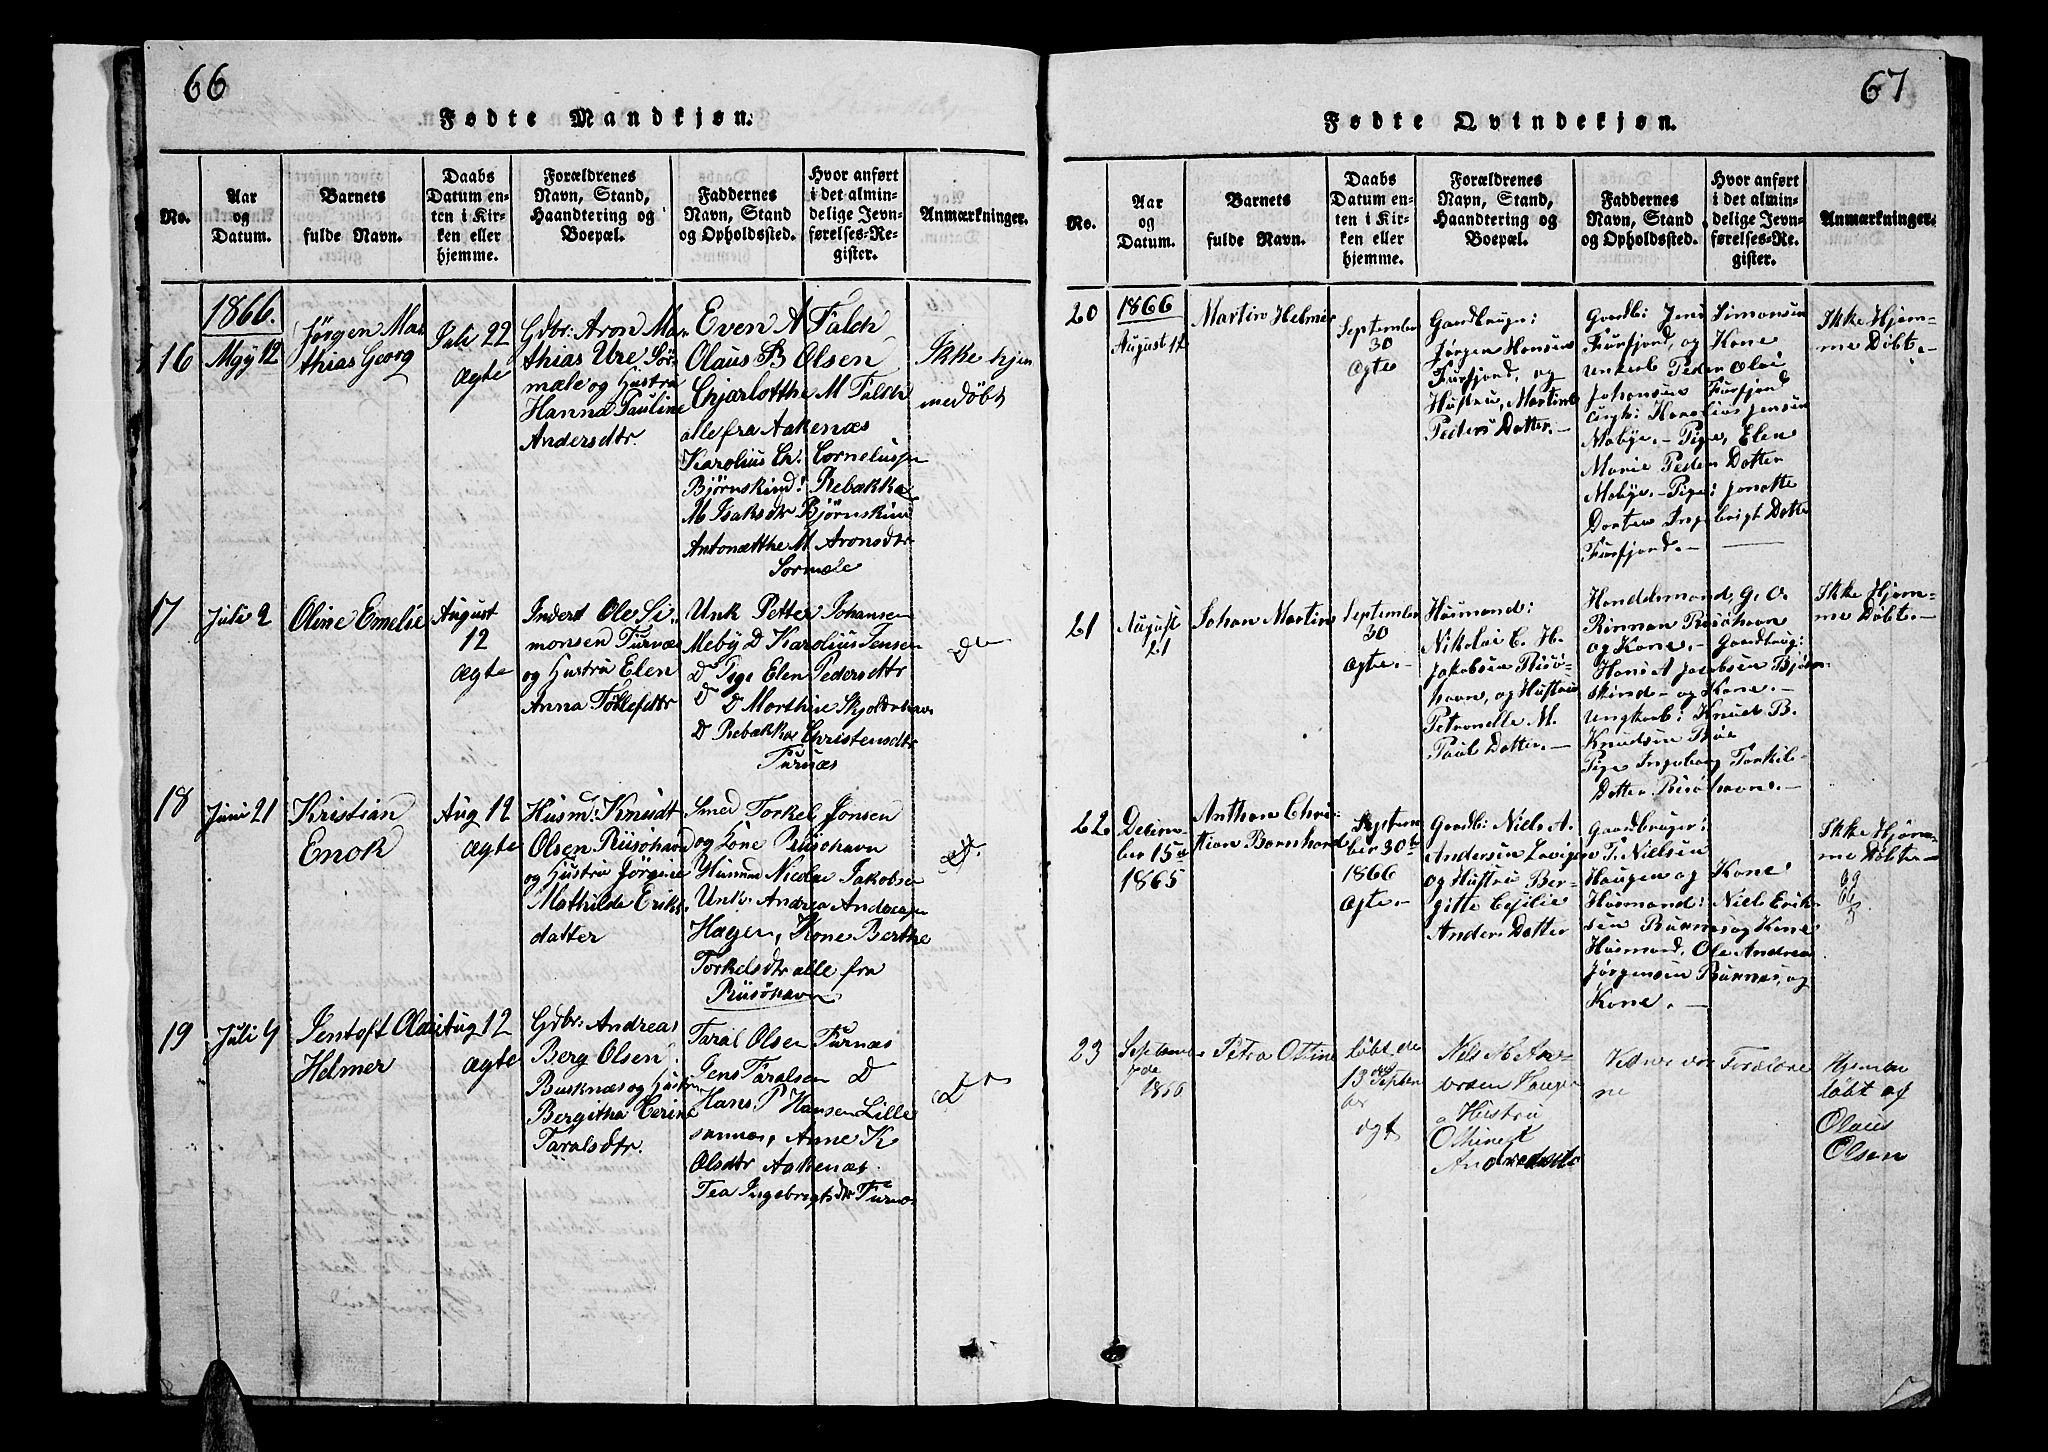 66
Fødte Mandkjøn.
No.
Aar
og
Datum.
Barnets
fulde Navn.
Daabs
Datum en-
ten i Kir-
ken eller
hjemme.
Forældrenes
Navn, Stand,
Haandtering og
Boepæl.
Faddernes
Navn, Stand
og Opholdssted.
Hvor anført
i det almin-
delige Jevn-
førelses-Re-
gister.
Anmærkninger.
1866.
16
May 12
Jørgen Ma-
thias Georg
Juli 22
ægte
Gdbr: Aron Ma-
thias Ure Sør-
mæle og Hustru
Hanna Pauline
Andersdtr.
Even A Falch
Olaus B Olsen
Chjarlotthe M Falch
alle fra Aakenæs
Karolius Ch: Corneliusen
Bjørnskind: Rebækka
M Isaksdtr Bjørnskind
Antonætthe M Aronsdtr
Sormæle
Ikke hjem
medøbt
17
Juli 2
Oline Emelie
August
12
ægte
Inderst Ole Si-
monsen Furnæs
og Hustru Elen
Anna Tøllefdtr
Unk Petter Johansen
Meby D Karolius Jensen
D Pige Elen Pedersdtr
D D Morthine Skjoldehavn
D Rebækka Christensdtr
Furnæs
Do
18
Juni 21
Kristian
Enok
Aug 12
ægte
Husm: Knudt
Olsen Riisøhavn
og Hustru Jørgine
Mathilde Eriks-
datter
Smed Torkel Jonsen
og Kone Riisøhavn
Husmd Nicolai Jakobsen
Unk: Andrea Andersen
Hagen, Kone Berthe
Torkelsdtr alle fra
Riisøhavn
19
Juli 9
Jentoft Olai
Helmer
Aug 12
ægte
Gdbr: Andreas
Berg Olsen
Busknæs og Hustru
Bergitha Cerine
Taralsdtr.
Taral Olsen Furnæs
Jens Taralsen D
Hans P Hansen Lille
sannæs, Anne K
Olsdtr Aakenæs
Tea Ingebrigtsdtr Furnæs
67
Fødte Qvindekjøn.
No.
Aar
og
Datum.
Barnets
fulde Navn.
Daabs
Datum en-
ten i Kir-
ken eller
hjemme.
Forældrenes
Navn, Stand,
Haandtering og
Boepæl.
Faddernes
Navn, Stand
og Opholdssted.
Hvor anført
i det almin-
delige Jevn-
førelses-Re-
gister.
Anmærkninger.
20
1866
August 12
Martin Helmer
September
30
ægte
Gaardbruger:
Jørgen Hansen
Furfjord, og
Hustru, Martine
Peders Datter.-
Gaardb: Jens Simonsen
Furfjord, og Kone
Unkarl Peder Olai
Johansen Furfjord
Ungk: Karolius Jensen
Mebye.- Pige, Elen
Marie Peders Datter
Mebye.- Pige: Jonette
Dortea Ingebrigt Datter
Furfjord.-
Ikke Hjem-
me Døbt.-
21
August
21
Johan Martin
September
30
ægte.-
Huusmand:
Nikolai C. H.
Jakobsen Risø-
havn, og Hustru
Petronelle M.
Paul Datter.-
Handelsmand, G. O.
Rinman Risøhavn
og Kone.- Gaardbrug:
Hans A Jacobsen Bjørn
skind- og Kone.-
Ungkarl: Knud B.
Knudsen
Pige Ingeborg Torkils-
Datter Risøhavn.-
Ikke Hjem-
me Døbt.-
22
Decem-
ber 15de
1865
Anthon Chri-
stian Bernhard
Septem
ber 30te
1866
ægte.-
Gaardb: Niels A.
Andersen Lovigen
og Hustru Ber-
gitte Cecilie
Anders Datter
Gaardbruger:
T. Nielsen
Haugen og Kone
Huusmand: Niels Erik-
sen Buknæs og Kone
Huusmand, Ole Andreas
Jørgensen Buknæs, og
Kone.-
Ikke Hjem-
me Døbt.-
23
Septemb
7de
1866
Petra Othine
døbt de
13de Septem
ber
ægt
Nils M An-
dersen Haugen
o Hustru
Othine
Andersdatte
Vidner var Foreldre
ne
Hjemme
døbt af
Olaus
Olsen